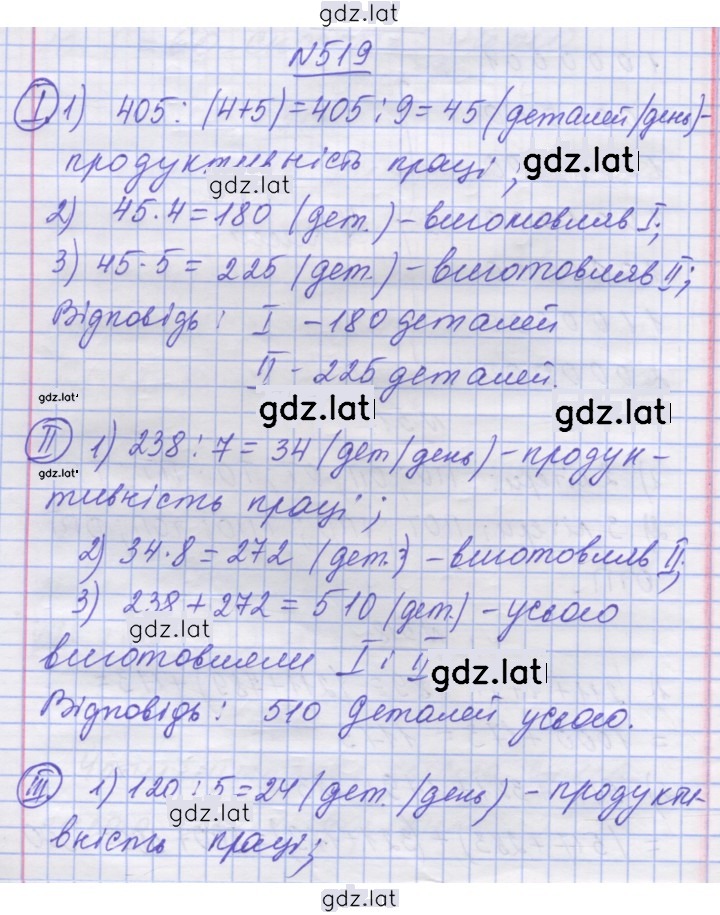 gdz.lat
N519
I 1) 405 : (4+5) = 405 : 9 = 45 (деталей/день)-
продуктивність праці ;
gdz.lat
gdz.lat
2) 45·4 = 180 (дет.) - виготовляв I;
3) 45·5 = 225 (дет.) - виготовляв II;
Відповідь : I - 180 деталей
II - 225 деталей.
gdz.lat
gdz.lat
gdz.lat
II 1) 238 : 7 = 34 (дет/день) - продук-
gdz.lat
тивність праці ;
2) 34·8 = 272 (дет.) - виготовляв II;
3) 238 + 272 = 510 (дет.) - усього
gdz.lat
виготовляли I і II
gdz.lat
Відповідь : 510 деталей усього.
III 1) 120 : 5 = 24 (дет. /день) - продукти-
gdz.lat
вність праці;
gdz.lat